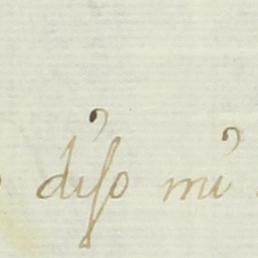 diſo mi